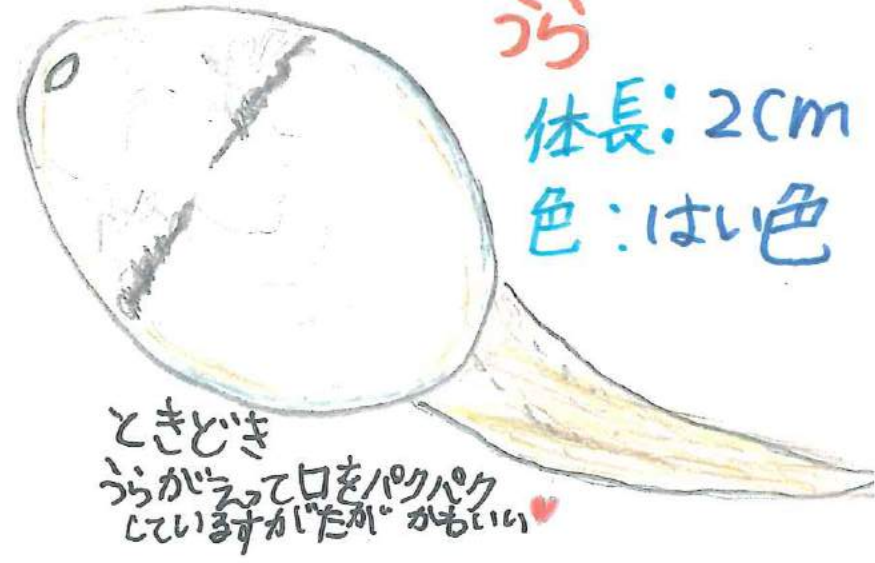 うら
体長：2cm
色：はい色
ときどき
うらがえって口をパクパク
しているすがたが かわいい